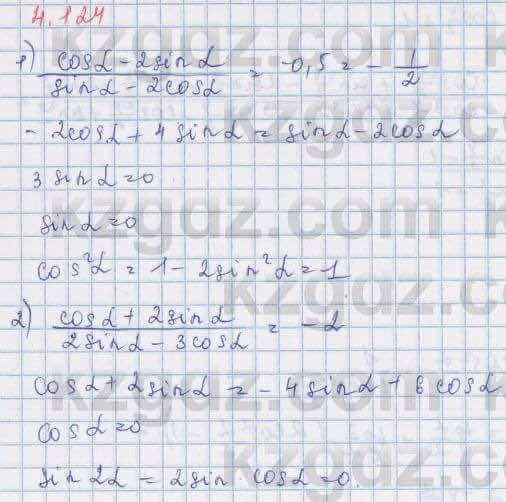 4.124
1) (cosα - 2sinα)/(sinα - 2cosα) = -0,5 = -1/2
- 2cosα + 4 sinα = sinα - 2cosα
3 sinα = 0
sinα = 0
cos²α = 1 - 2sin²α = 1
2) (cosα + 2sinα)/(2sinα - 3cosα) = -2
cosα + 2sinα = -4sinα + 6cosα
cosα = 0
sin2α = 2sin · cosα = 0.
kzgdz.com